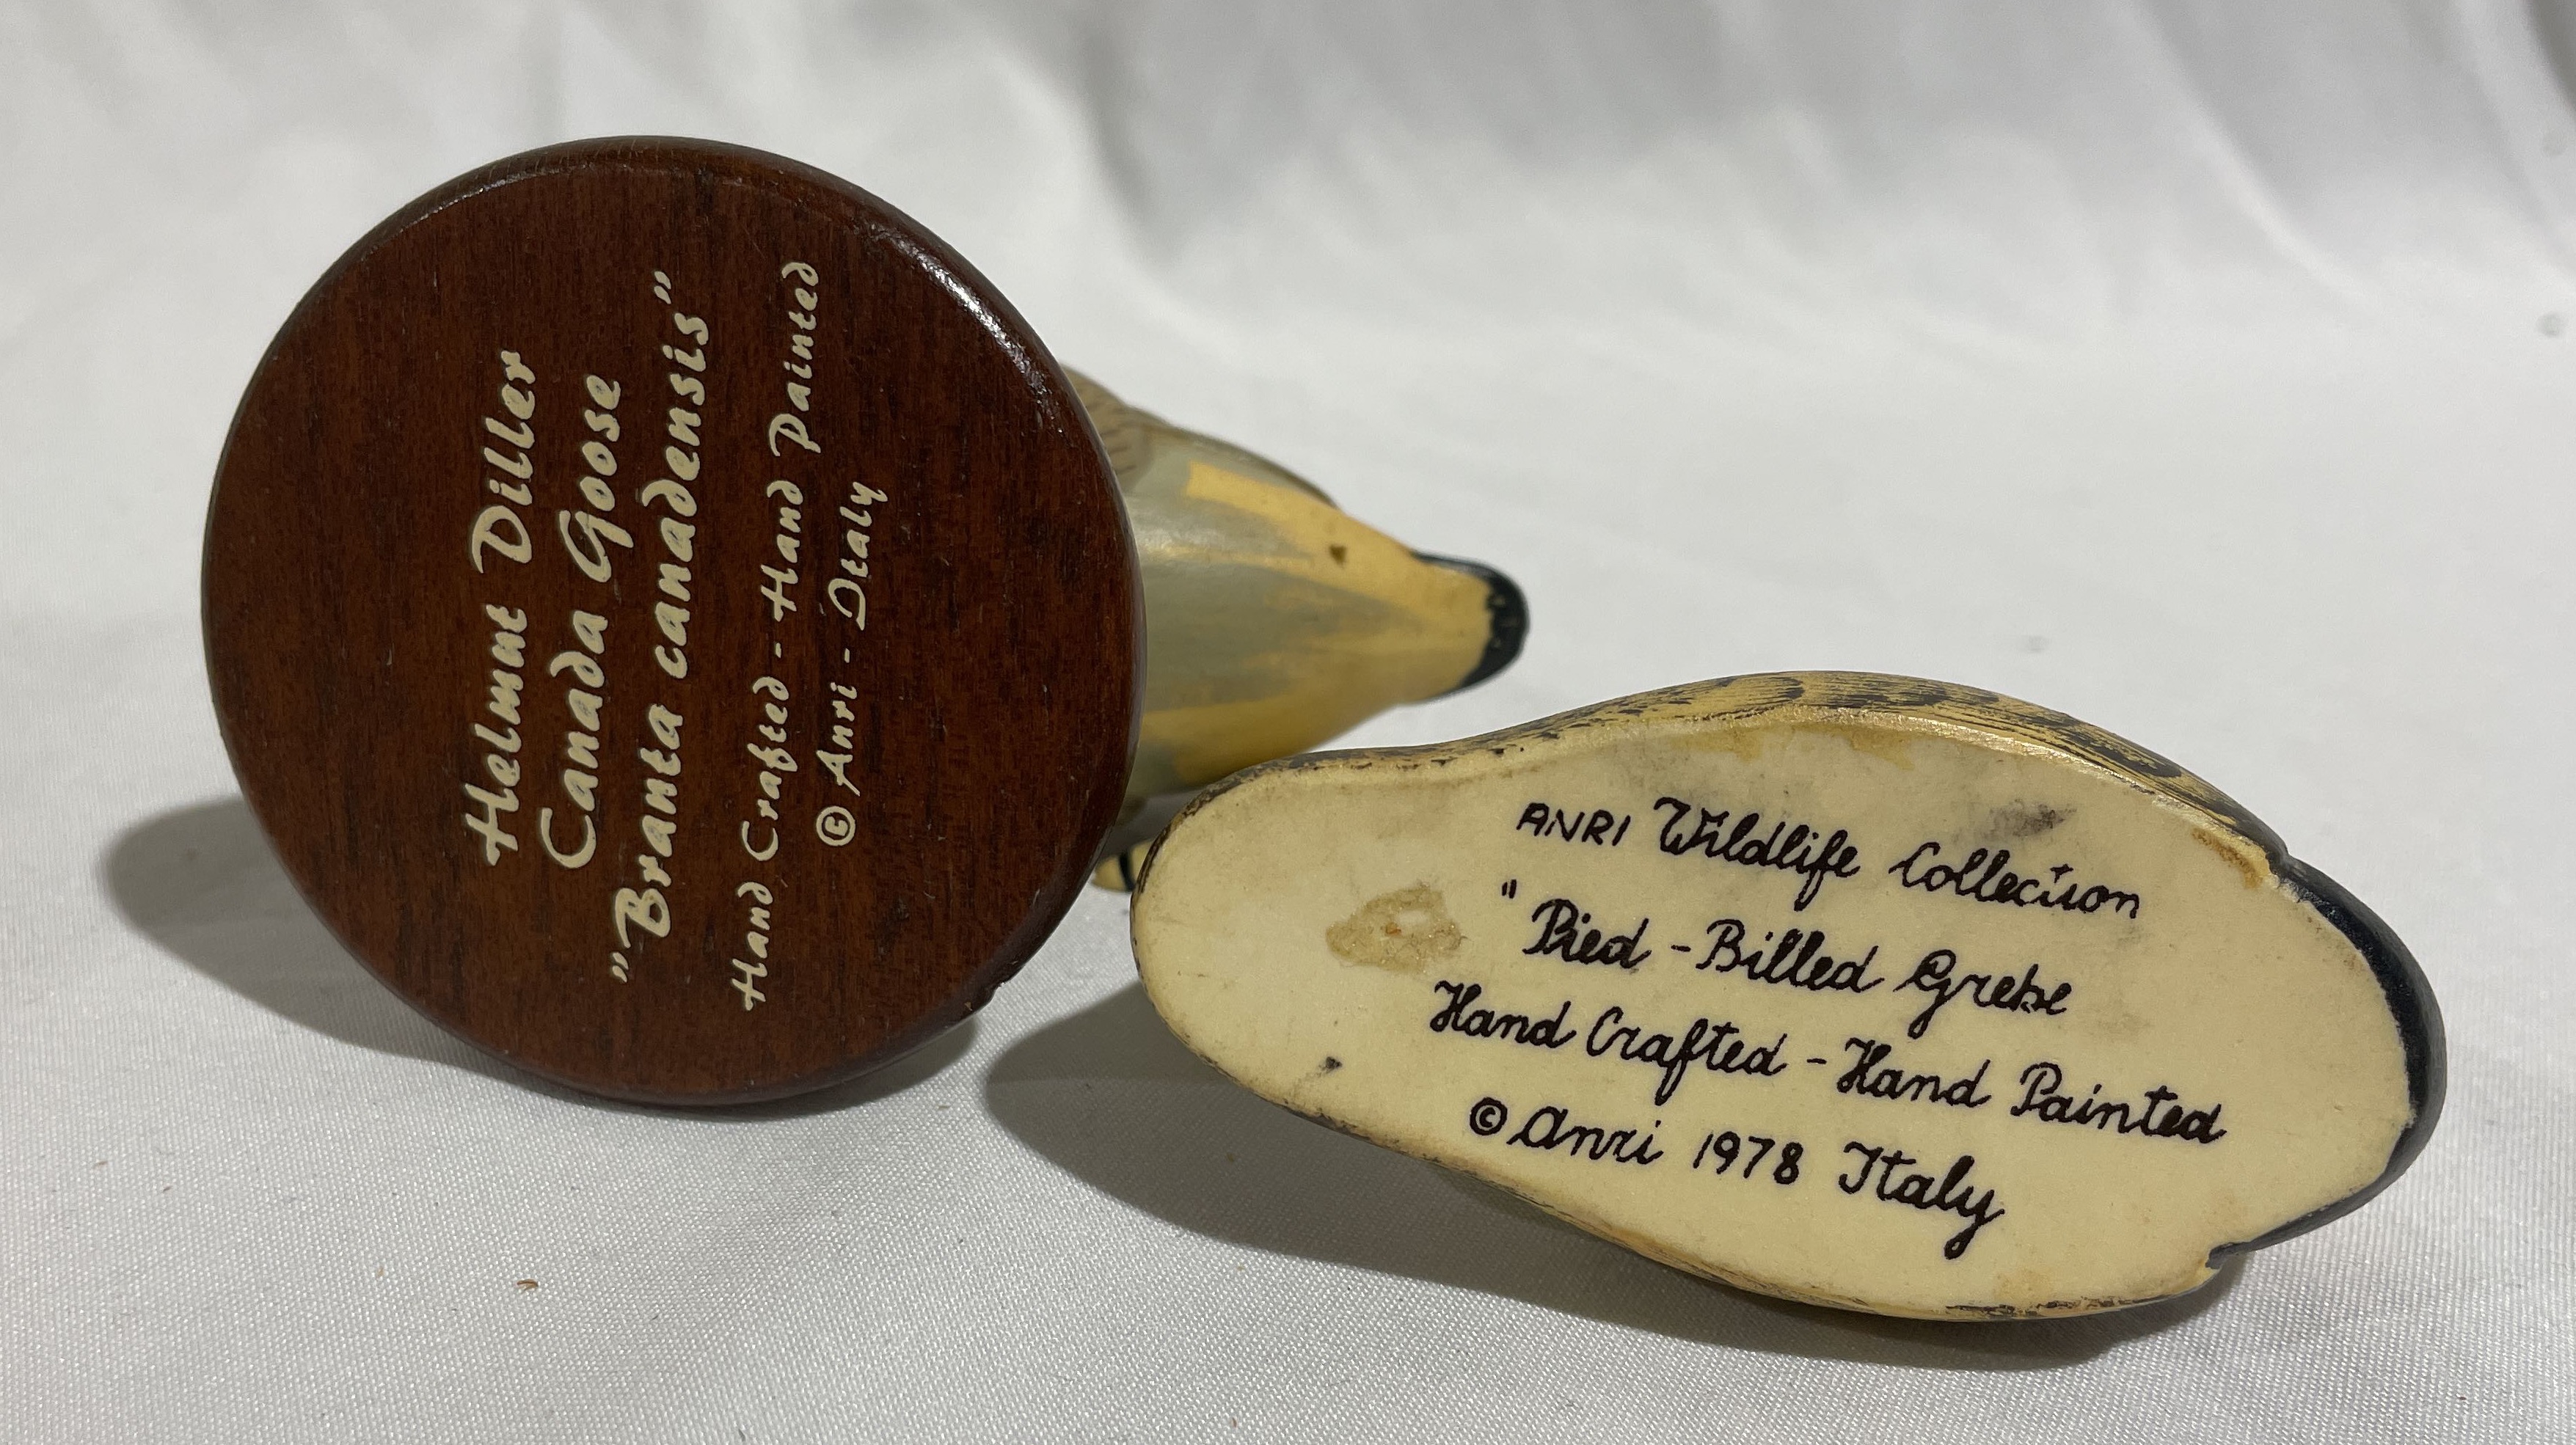 Helmut Diller
Canada Goose
"Branta canadensis"
Hand Crafted - Hand Painted
© Anri - Italy
ANRI Wildlife Collection
"Pied - Billed Grebe
Hand Crafted - Hand Painted
© Anri 1978 Italy